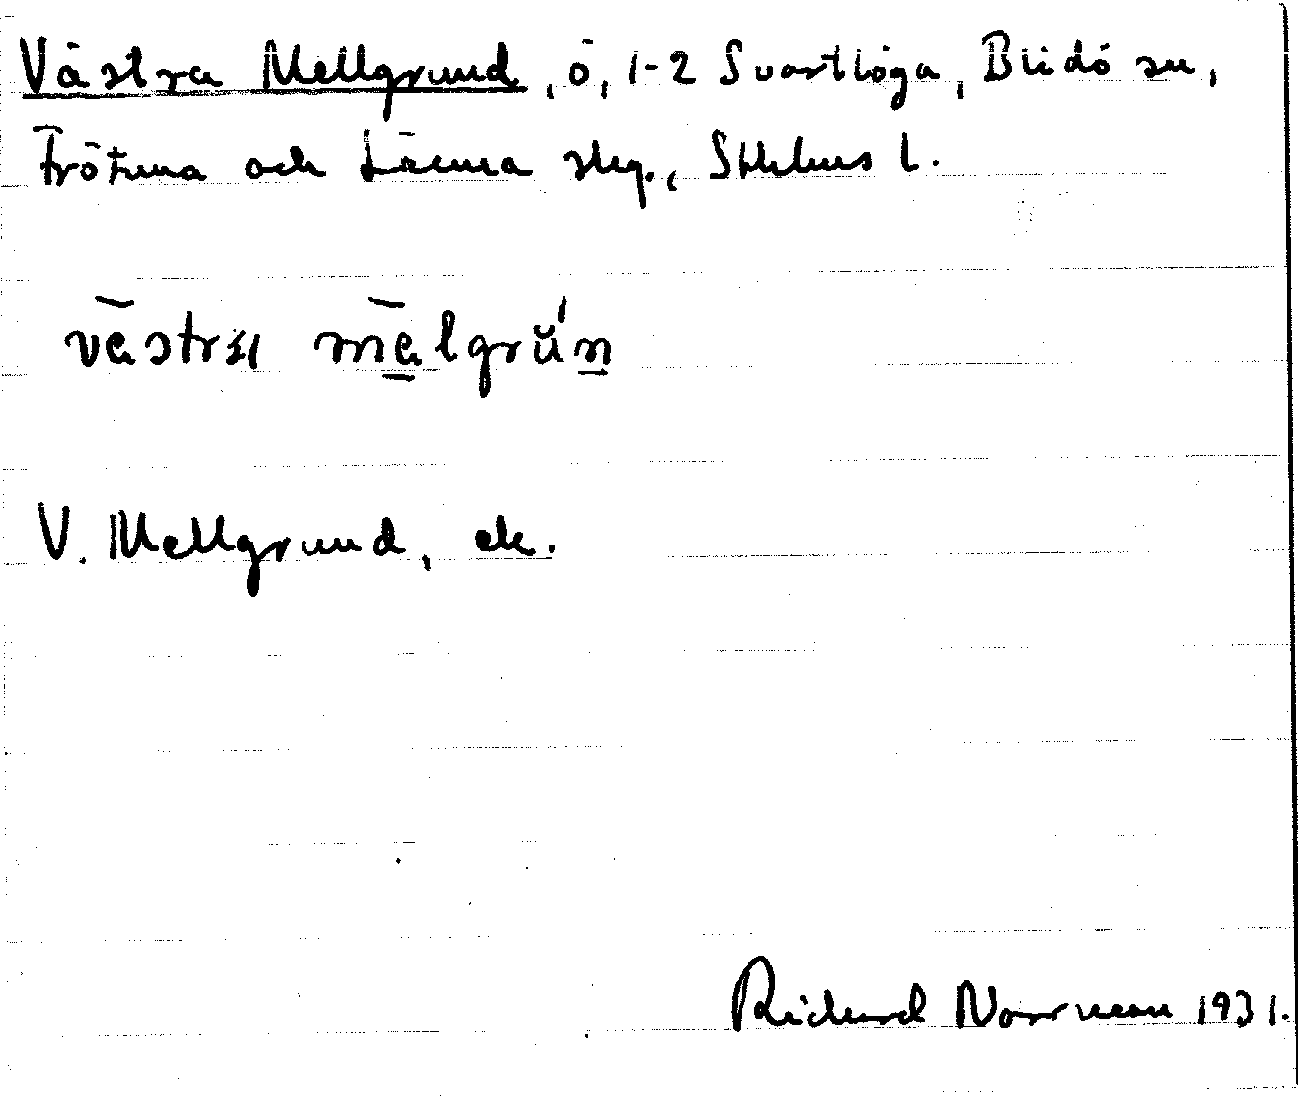 Västra Mellgrund, ö, 1-2 Svartlöga, Blidö sn,
Frötuna och Länna skg., Sthlms l.
västra mälgrŭ́n
V. Mellgrund, ek.
Richard Norrman 1931.